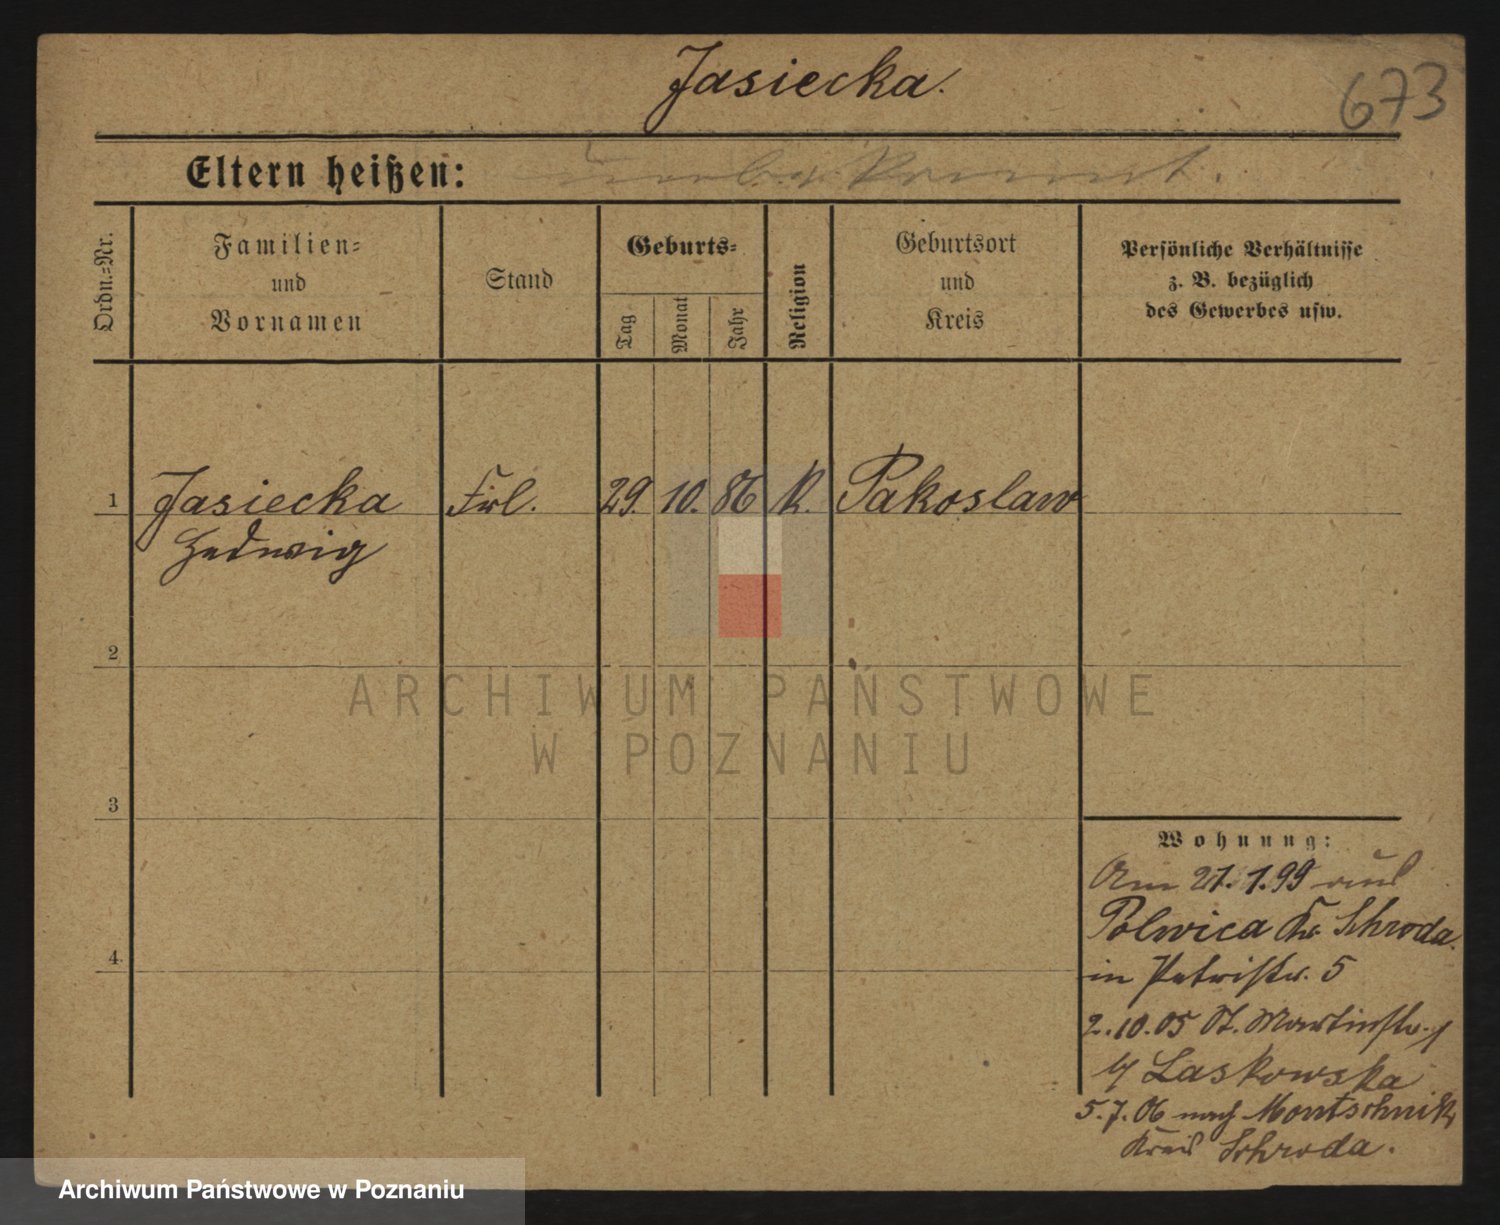 Jasiecka.
673
Eltern heißen: unbekannt.
Ordn.=Nr.
Familien=
und
Vornamen
Stand
Geburts=
Tag
Monat
Jahr
Religion
Geburtsort
und
Kreis
Persönliche Verhältnisse
z. B. bezüglich
des Gewerbes usw.
1 Jasiecka Frl. 29. 10. 86 K. Pakoslaw
Hedwig
2
3
4
Wohnung:
Am 21.1.99 aus
Polwica Kr. Schroda.
in Petristr. 5
2.10.05 St. Martinstr.
b/ Laskowska
5.7.06 nach Montschnik,
Kreis Schroda.
ARCHIWUM PAŃSTWOWE
W POZNANIU
Archiwum Państwowe w Poznaniu